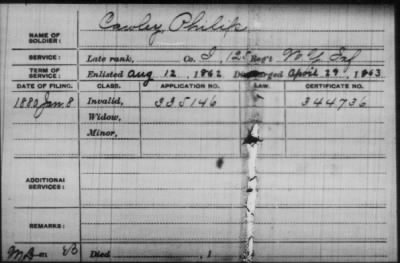 Cawley, Philip
NAME OF SOLDIER:
SERVICE: Late rank, Co. I, 125 Reg't N.Y. Inf
TERM OF SERVICE: Enlisted Aug 12, 1862 Discharged April 29, 1863
DATE OF FILING. CLASS. APPLICATION NO. LAW. CERTIFICATE NO.
1880 Jan. 8 Invalid, 335146 344736
Widow,
Minor,
ADDITIONAL SERVICES:
REMARKS:
Died , 1